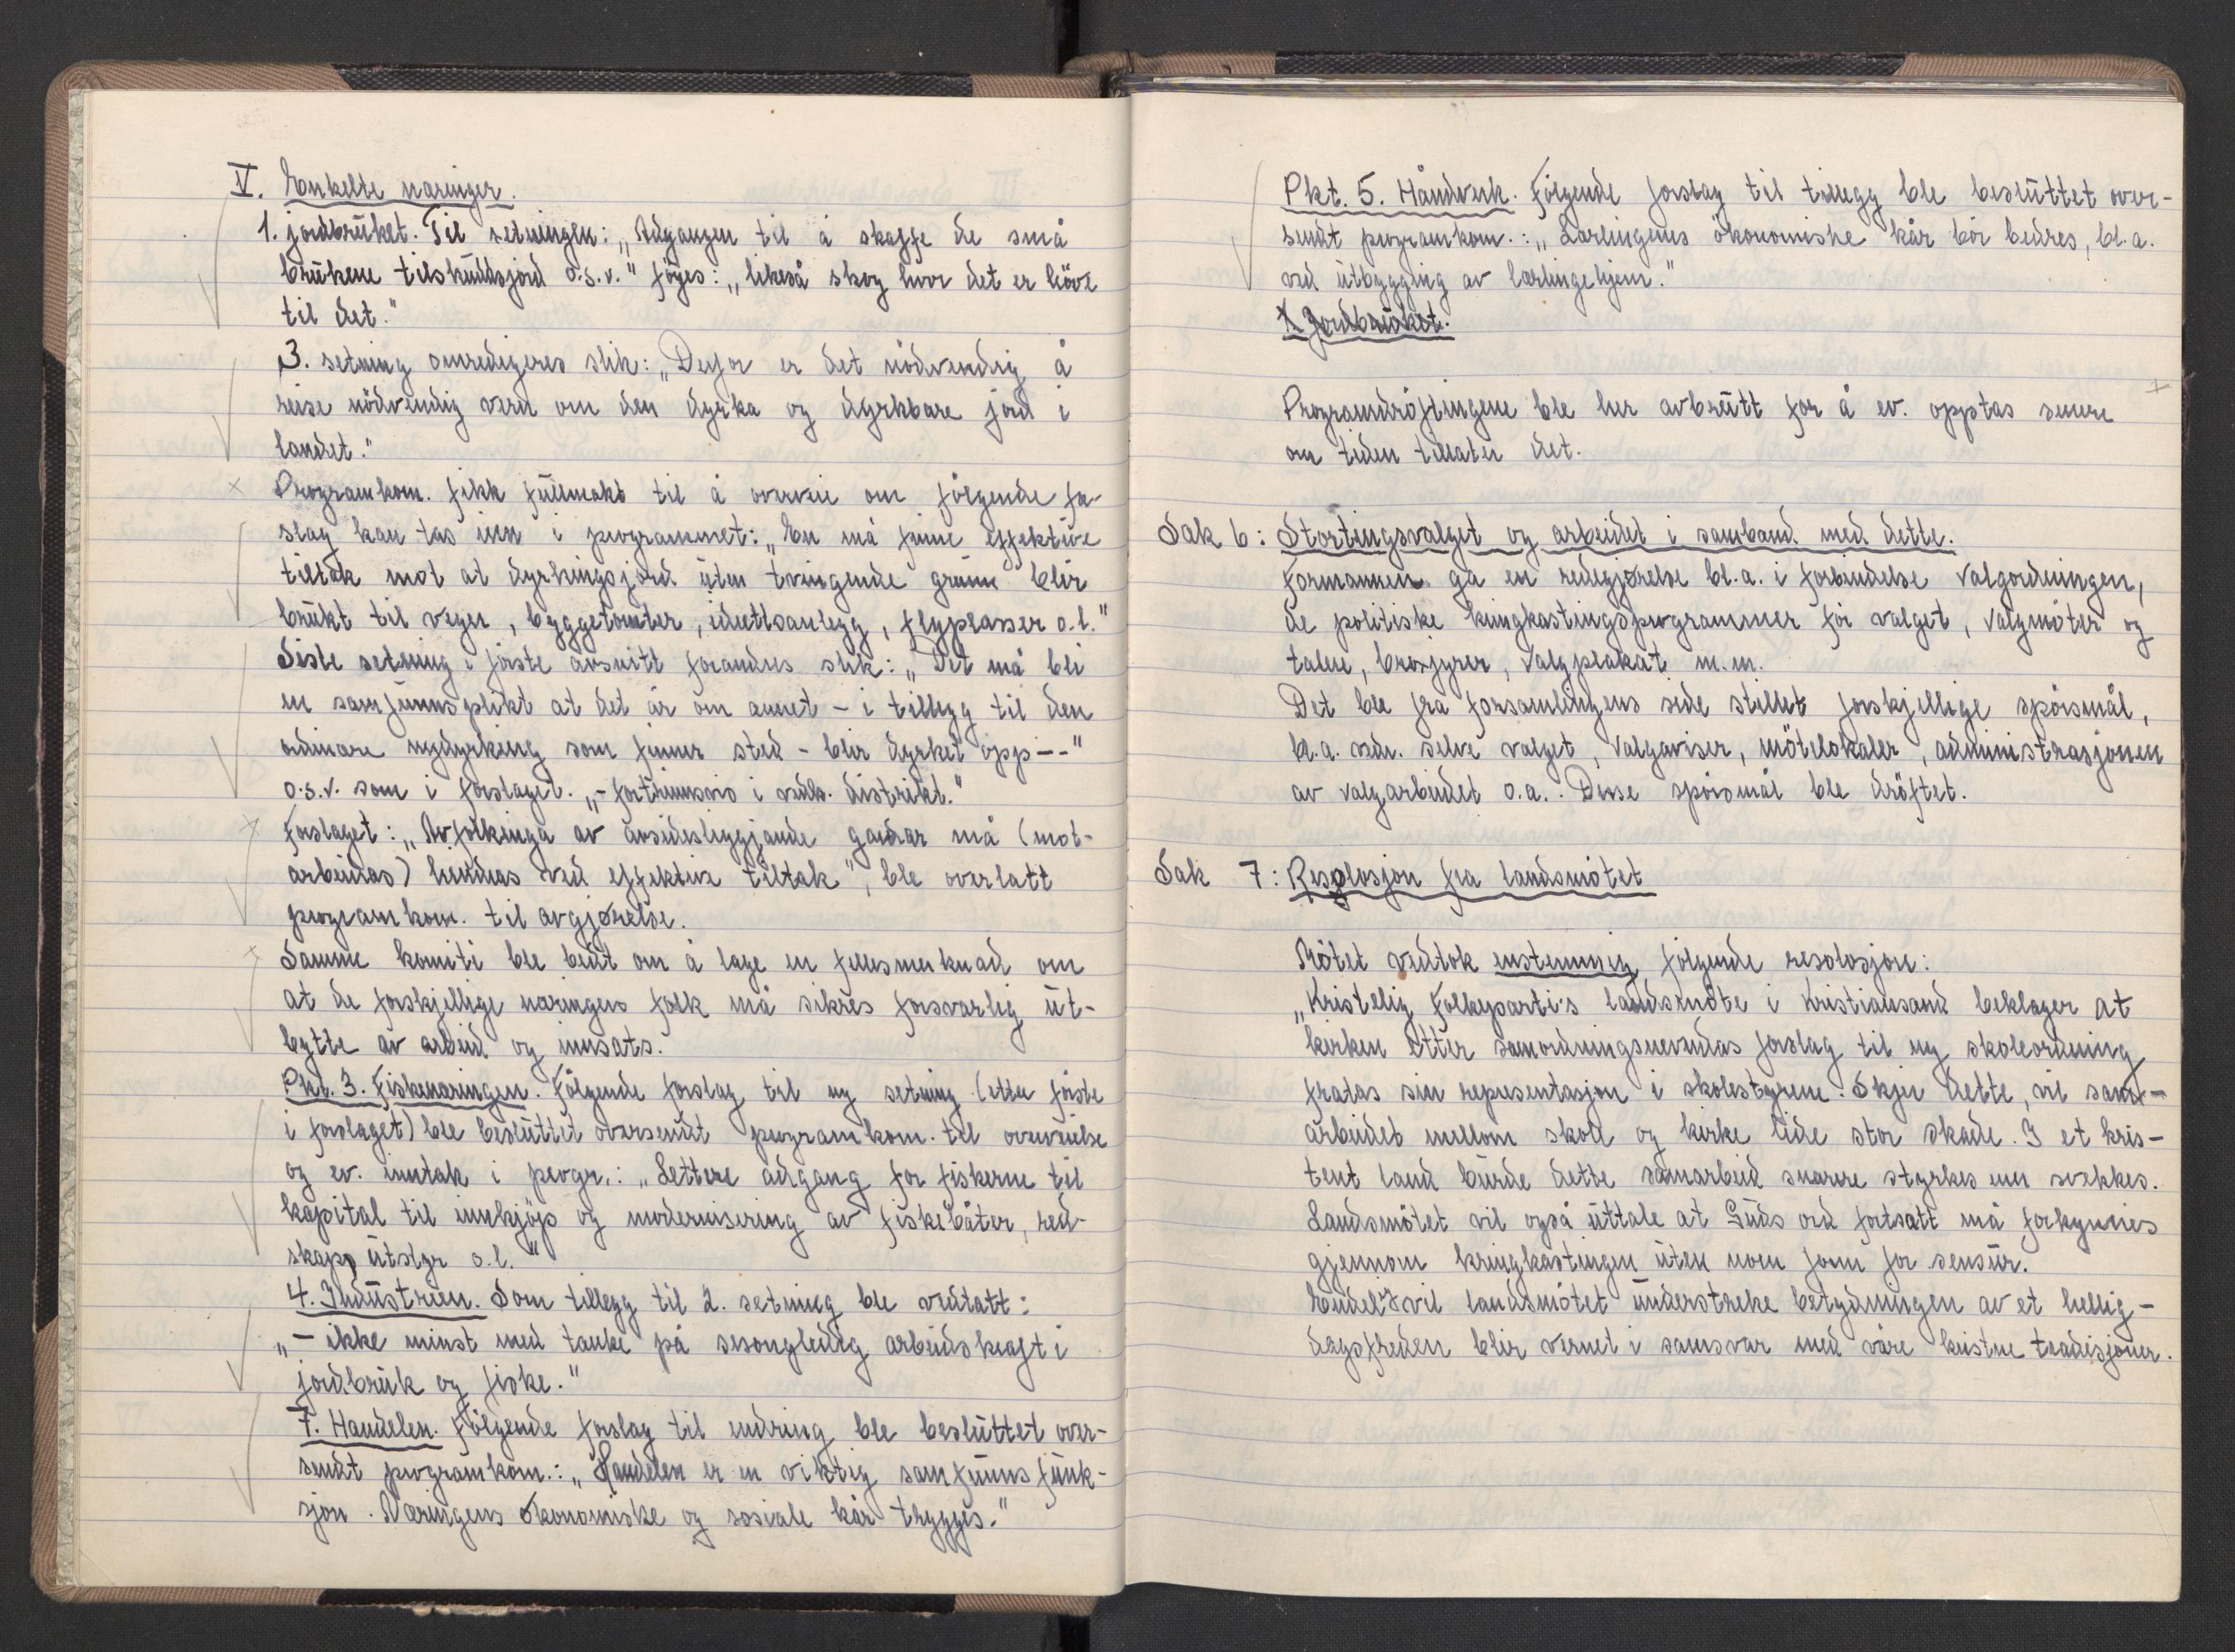 V. Enkelte næringer.
1. jordbruket. Til setningen: „Adgangen til å skaffe de små
brukene tilskuddsjord o.s.v." föyes: „likeså skog hvor det er höve
til det."
3. setning omredigeres slik: „Derfor er det nödvendig å
reise nödvendig vern om den dyrka og dyrkbare jord i
landet."
Programkom. fikk fullmakt til å overveie om fölgende for-
slag kan tas inn i programmet: „En må finne effektive
tiltak mot at dyrkingsjord uten tvingende grunn blir
brukt til veger, byggetomter, idrettsanlegg, flyplasser o.l."
Siste setning i förste avsnitt forandres slik: „Det må bli
en samfunnsplikt at det år om annet - i tillegg til den
ordinære nydyrking som finner sted - blir dyrket opp --"
o.s.v. som i forslaget. „- fortrinnsvis i vedk. distrikt."
Forslaget: „Avfolkinga av avsidesliggjande gardar må (mot-
arbeidas) hindras ved effektive tiltak", ble overlatt
programkom. til avgjørelse.
Samme komité ble bedt om å lage en fellesmerknad om
at de forskjellige næringers folk må sikres forsvarlig ut-
bytte av arbeid og innsats.
Pkt. 3. Fiskenæringen. Fölgende forslag til ny setning (etter förste
i forslaget) ble besluttet oversendt programkom. til overveielse
og ev. inntak i progr.: „Lettere adgang for fiskerne til
kapital til innkjöp og modernisering av fiskebåter, red-
skap, utstyr o.l."
4. Industrien. Som tillegg til 2. setning ble vedtatt:
„- ikke minst med tanke på sesongledig arbeidskraft i
jordbruk og fiske."
7. Handelen. Fölgende forslag til endring ble besluttet over-
sendt programkom.: „Handelen er en viktig samfunnsfunk-
sjon. Næringens økonomiske og sosiale kår trygges."
Pkt. 5. Håndverk. Fölgende forslag til tillegg ble besluttet over-
sendt programkom.: „Lærlingens ökonomiske kår bör bedres, bl.a.
ved utbygging av lærlingehjem."
1. Jordbruket.
Programdröftingene ble her avbrutt for å ev. opptas senere
om tiden tillater det.
Sak 6: Stortingsvalget og arbeidet i samband med dette.
Formannen ga en redegjørelse bl.a. i forbindelse valgordningen,
de politiske kringkastingsprogrammer för valget, valgmöter og
talere, brosjyrer, valgplakat m.m.
Det ble fra forsamlingens side stillet forskjellige spörsmål,
bl.a. vedr. selve valget, valgaviser, mötelokaler, administrasjonen
av valgarbeidet o.a. Disse spörsmål ble dröftet.
Sak 7: Resolosjon fra landsmötet
Mötet vedtok enstemmig fölgende resolosjon:
„Kristelig Folkeparti's landsmöte i Kristiansand beklager at
kirken etter samordningsnevndas forslag til ny skoleordning
fratas sin representasjon i skolestyrene. Skjer dette, vil sam-
arbeidet mellom skole og kirke lide stor skade. I et kris-
tent land burde dette samarbeid snarere styrkes enn svekkes.
Landsmötet vil også uttale at Guds ord fortsatt må forkynnes
gjennom kringkastingen uten noen form for sensur.
Endelig vil landsmötet understreke betydningen av et hellig-
dagsfreden blir vernet i samsvar med våre kristne tradisjoner.